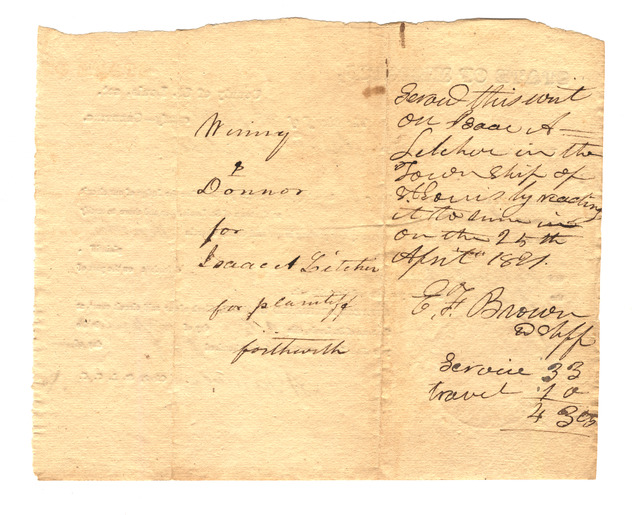 Winny
&
Donnor
for
Isaac A Litcher
for plaintiff
forthwith
Servd this writ
on Isaac A
Letcher in the
Township of
St Louis by reading
it to him in
on the 25th
April 1821.
E. F. Brown
D Shff
Service 33
travel 10
43